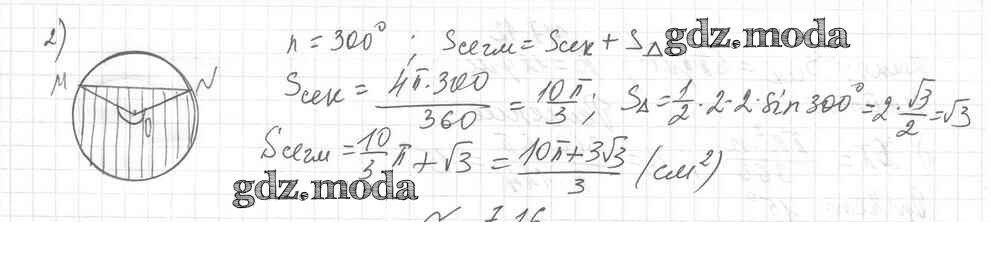 2)
n = 300° ; Sсегм = Sсек + S△ gdz.moda
M N
Sсек = 4π·300/360 = 10π/3 ; S△ = 1/2·2·2·sin 300° = 2·√3/2 = √3
O
Sсегм = 10/3 π + √3 = (10π+3√3)/3 (см²)
gdz.moda